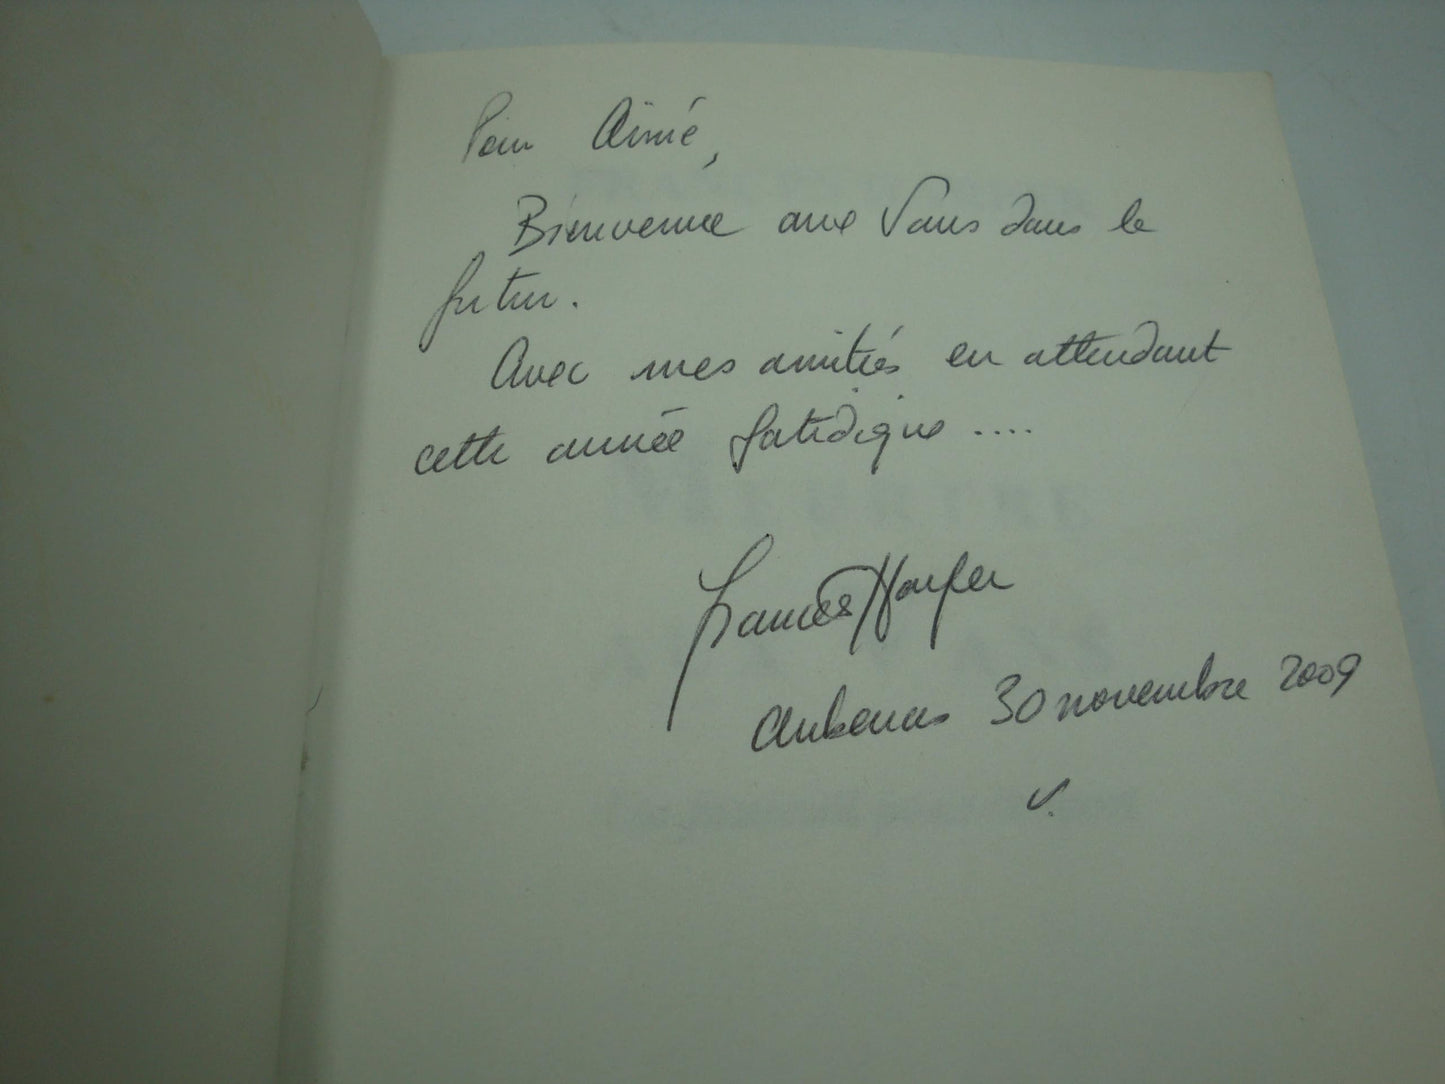 Pour Aimé,
Bienvenue aux Vans dans le
futur.
Avec mes amitiés en attendant
cette année fatidique ....
Aubenas 30 novembre 2009